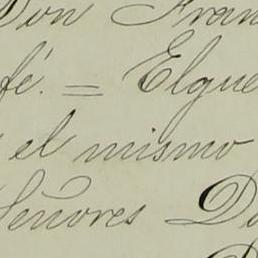 Don Fran
fé. = Elgue
el mismo
Señores D